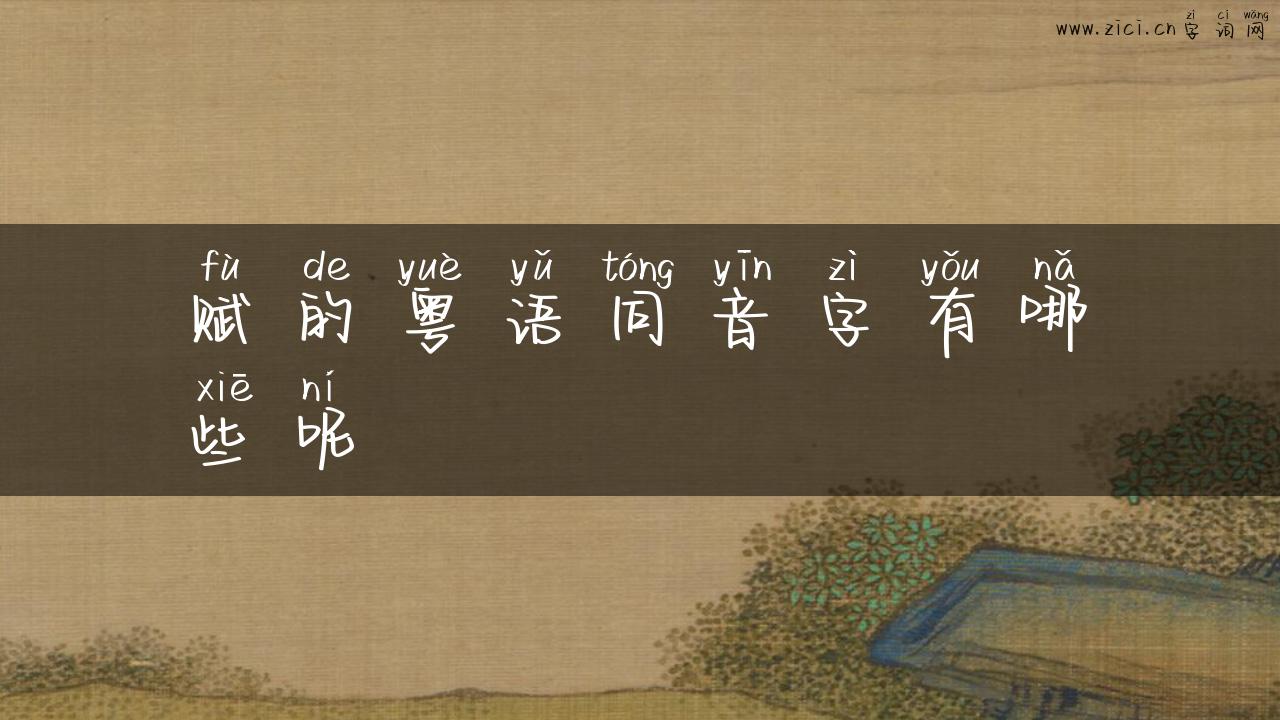 zì cí wǎng
www.zici.cn 字词网
fù de yuè yǔ tóng yīn zì yǒu nǎ
赋的粤语同音字有哪
xiē ní
些呢